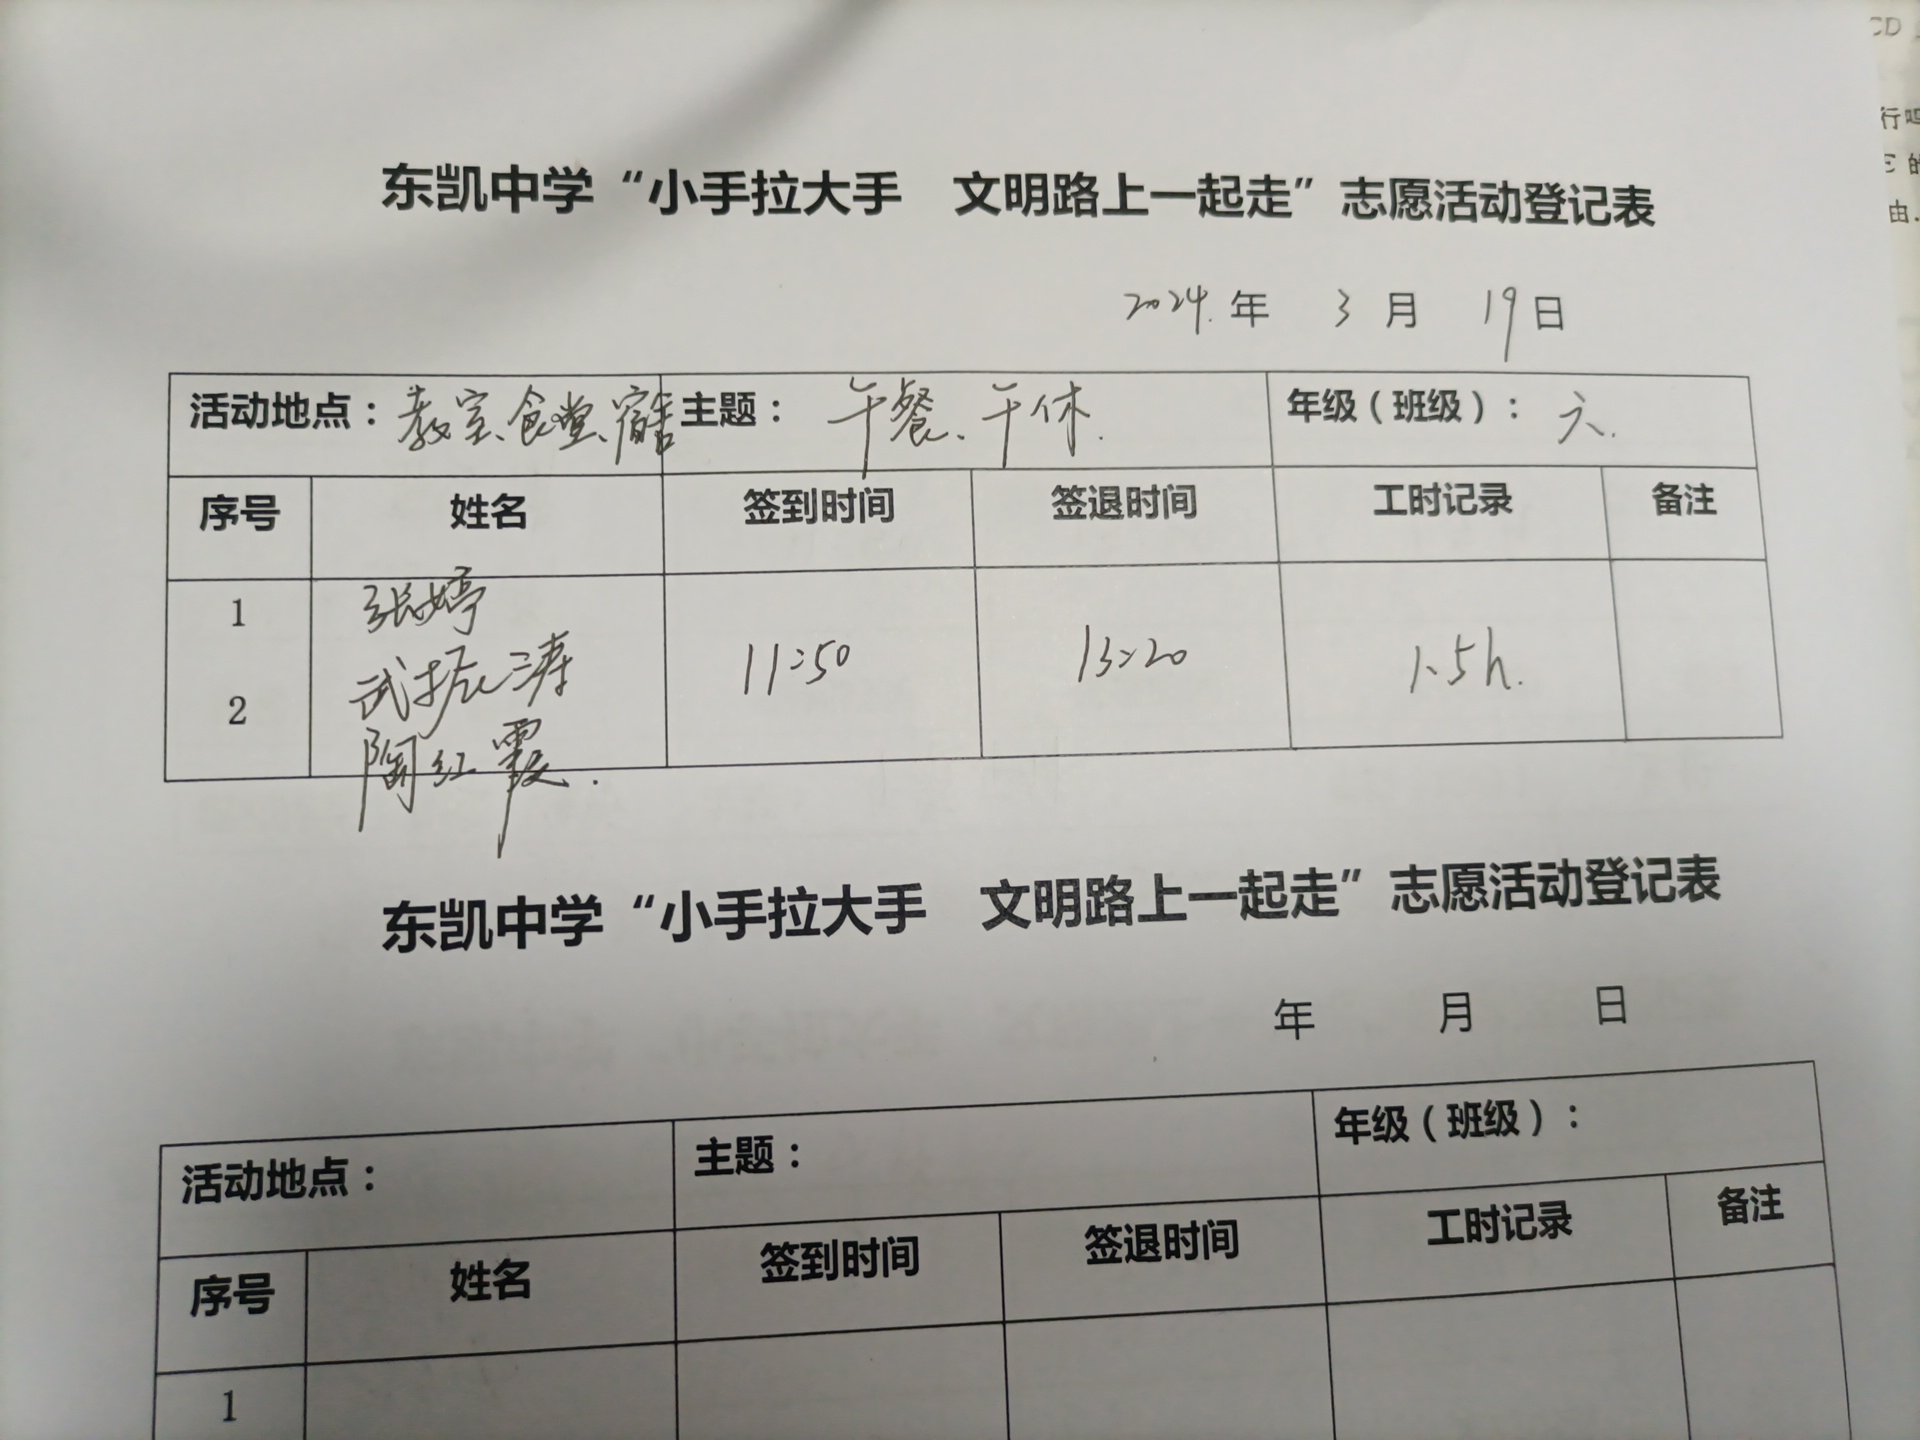 东凯中学“小手拉大手 文明路上一起走”志愿活动登记表
2024.年 3 月 19日
活动地点：教室、食堂、宿舍 主题：午餐、午休. 年级（班级）：六.
序号 姓名 签到时间 签退时间 工时记录 备注
1 张婷
武振涛 11:50 13:20 1.5h.
2
陶红霞.
东凯中学“小手拉大手 文明路上一起走”志愿活动登记表
年 月 日
活动地点： 主题： 年级（班级）：
序号 姓名 签到时间 签退时间 工时记录 备注
1
CD
行
的
由.